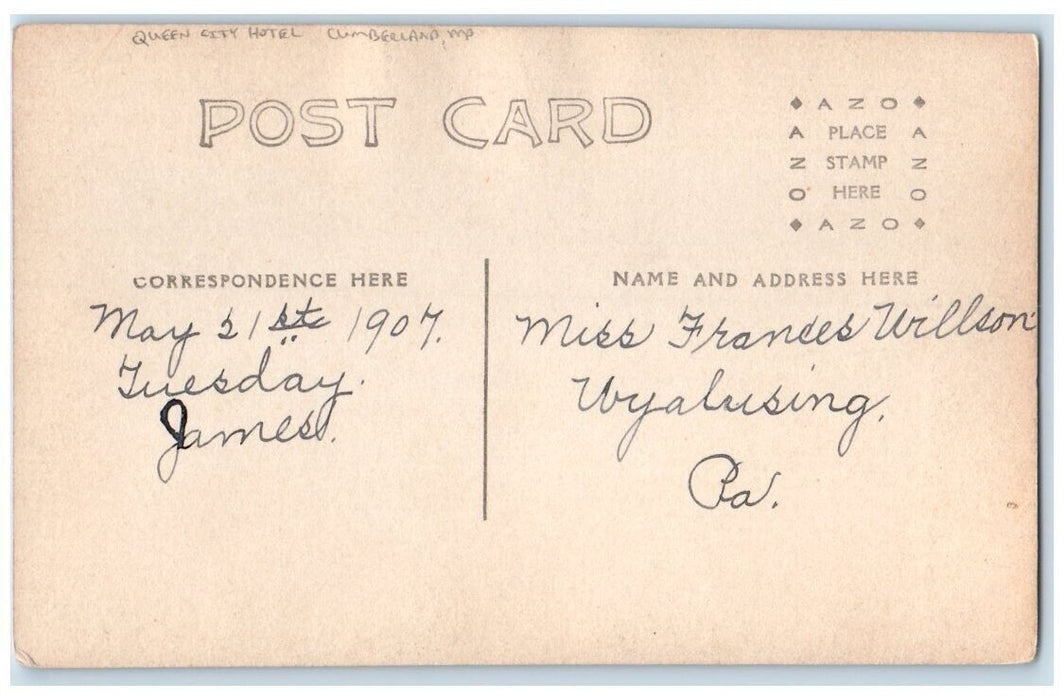 QUEEN CITY HOTEL CUMBERLAND, MD
POST CARD
AZO
A PLACE A
Z STAMP Z
O HERE O
AZO
CORRESPONDENCE HERE
May 21st 1907.
Tuesday.
James.
NAME AND ADDRESS HERE
Miss Frances Willson
Wyalusing,
Pa.